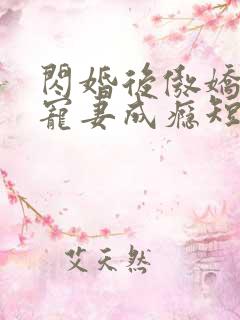 閃婚後傲嬌
寵妻成瘾短
艾天然